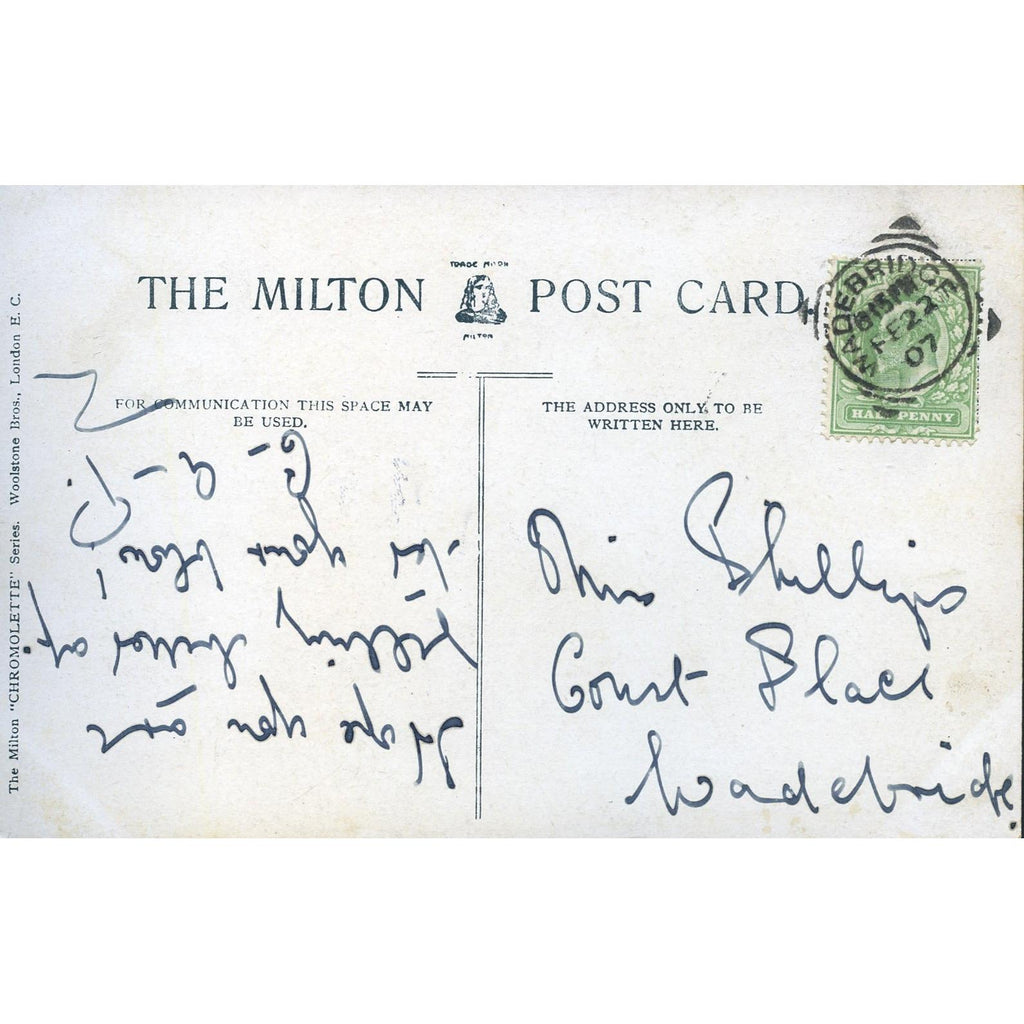 THE MILTON POST CARD
TRADE MARK
MILTON
FOR COMMUNICATION THIS SPACE MAY
BE USED.
THE ADDRESS ONLY TO BE
WRITTEN HERE.
The Milton "CHROMOLETTE" Series. Woolstone Bros., London E. C.
WADEBRIDGE
FE 22
07
HALFPENNY
Hope you are
feeling better after
your
Miss Phillips
Court Place
Wadebridge.